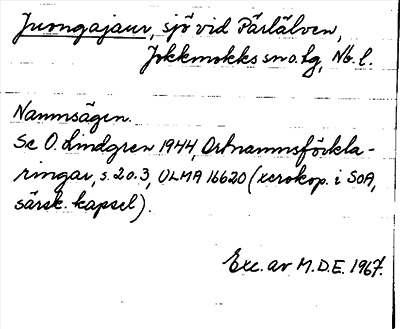 Juongajaur, sjö vid Pärlälven,
Jokkmokks sn o. lg, Nb. l.
Namnsägen.
Se O. Lindgren 1944, Ortnamnsförkla-
ringar, s. 2 o. 3, ULMA 16620 (xerokop. i SOA,
särsk. kapsel).
Exc. av M.D.E. 1967.